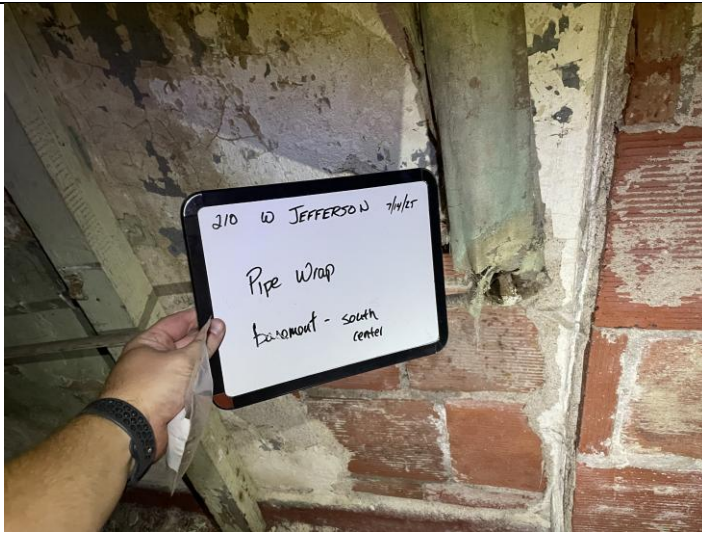 210 W JEFFERSON 7/14/25
Pipe Wrap
basement - south
center